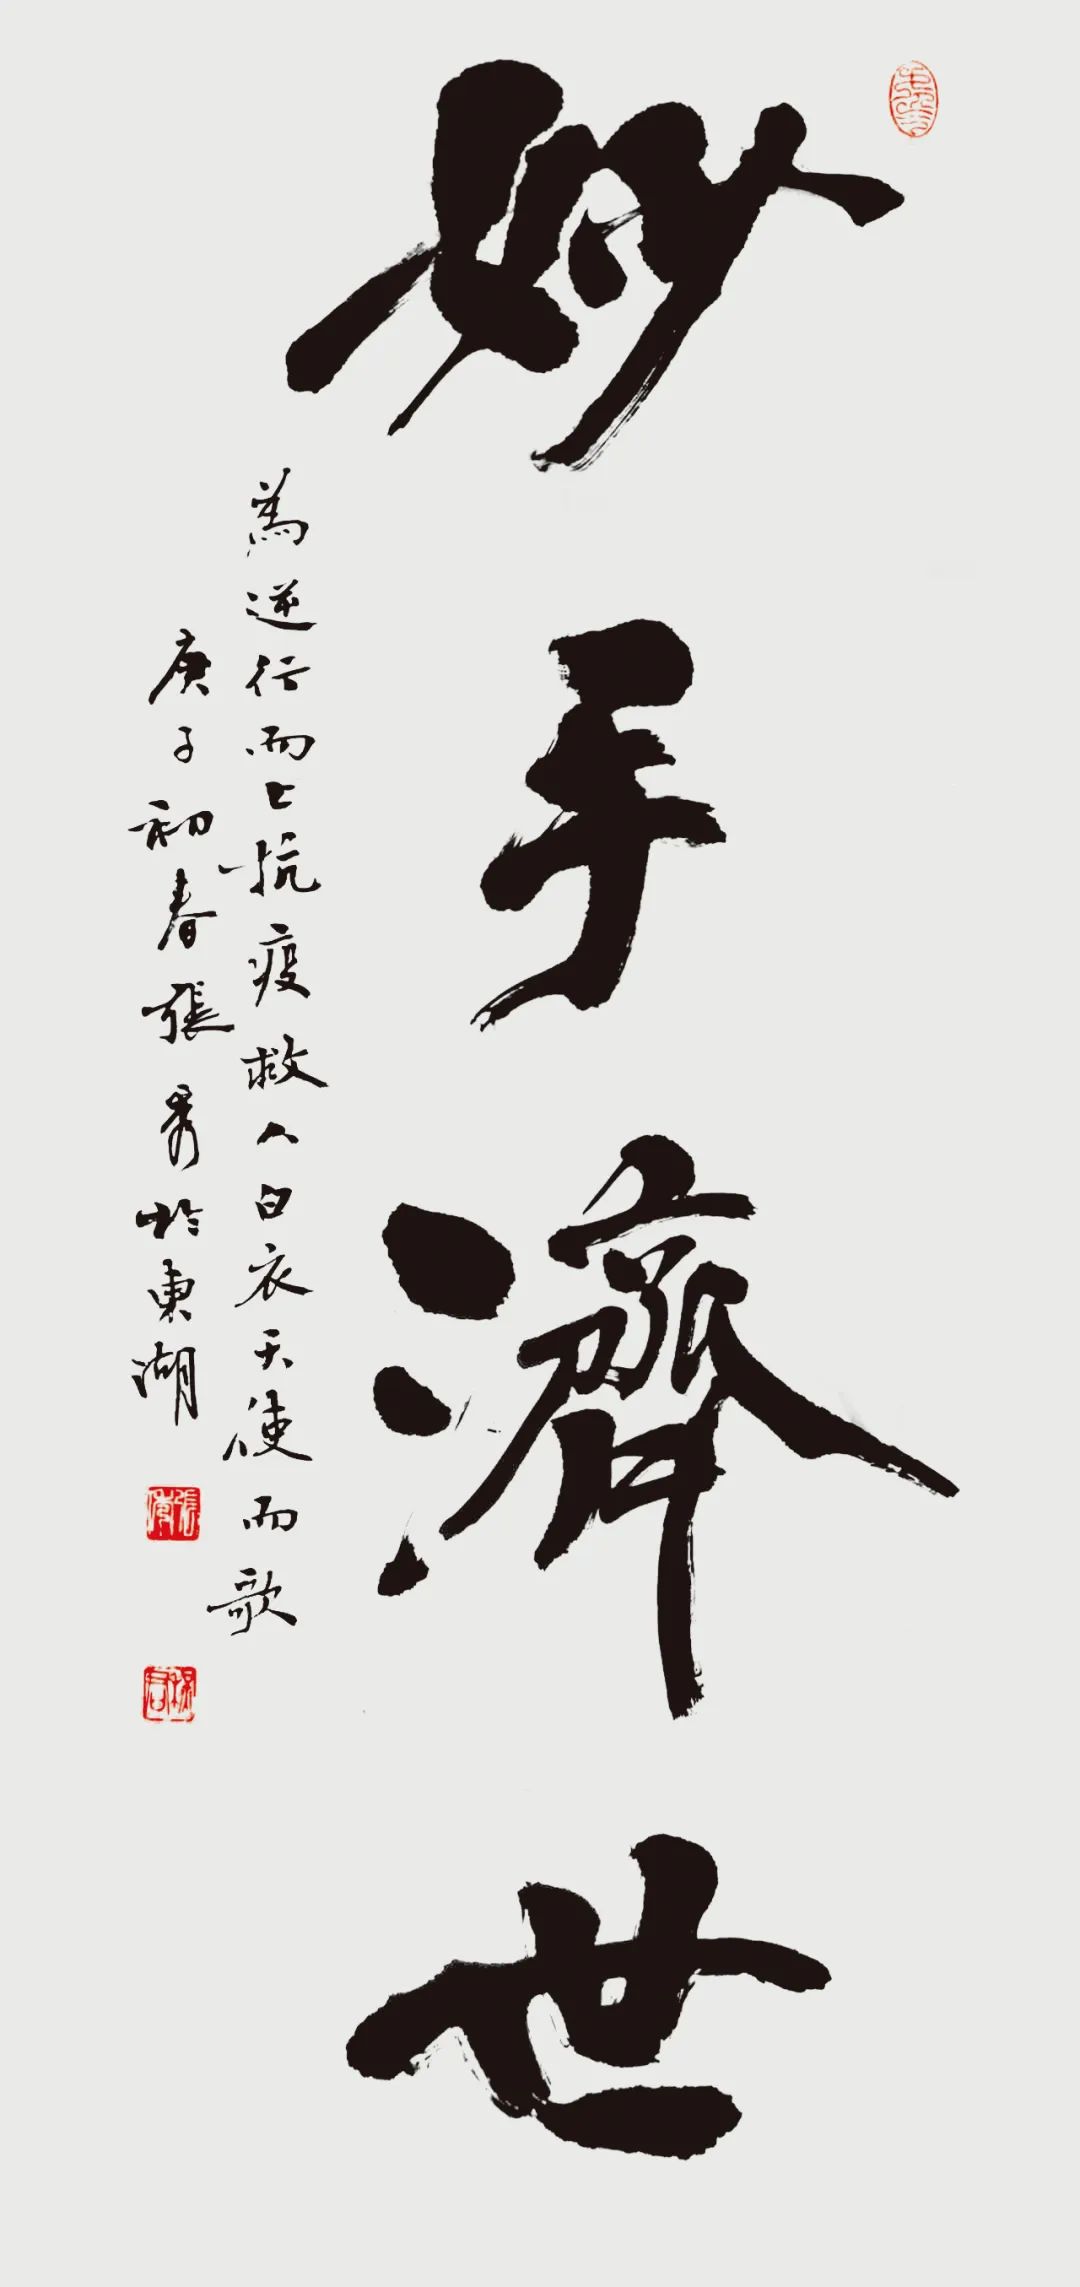 妙手濟世
為逆行而上抗疫救人白衣天使而歌
庚子初春張於東湖